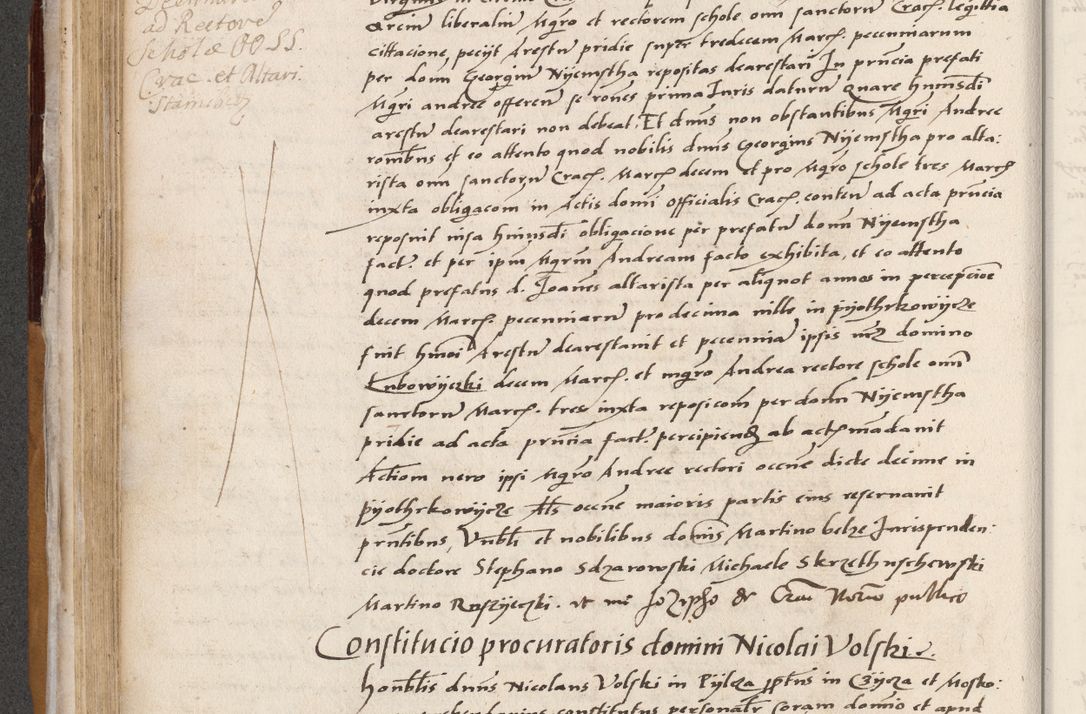 ad Rectore
Scholæ OO SS.
Crac. et Altari.
ercin liberaliu Mgro et rectorem schole omn sanctoru Crach. legittia
cittacione, peciit Arestu pridie super tredecem March. pecuniarum
per domn Georgiu Nyemstha repositas dearestari In prncia prefati
Mgri andree offeren se rones prima Iuris daturu quare hmoi
arestu dearestari non debeat, Et dnus non obstantibus Mgri Andree
romibus ex eo attento quod nobilis dnus Georgius Nyemstha pro alta:
rista omn sanctoru Crach. March decem et pro Mgro schole tres March
iuxta obligacom in Actis domi officialis Crach. contenu ad acta prncia
reposuit iuxa huiusdi obligacione per prefatu domn Nyemstha
fact? et per ipm Mgrm Andream facto exhibita, et eo attento
quod prefatus d. Joannes altarista per aliquot annos in percepcione
decem March. pecuniaru pro decima ville in pyothrkowycze
fuit hmoi Arestu dearestauit et pecunia ipsis mz domino
Lubowyeczki decem March. et mgro Andrea rectore schole omn
sanctoru March. tres iuxta reposicom per domn Nyemstha
pridie ad acta prncia fact? percipiend ab acth madauit
Actiom uero ipsi Mgro Andree rectori occne dicte decime in
pyothrkowycze Als occne maioris partis eius reseruauit
prntibus, Unbli et nobilibus domis Martino belze Iurispruden:
cie doctore Stephano Sdzarowski Michaele Skrzethuschewski
Martino Ruszyeczki. et me Jozepho de Crac Noro publico
Constitucio procuratoris domini Nicolai Volski.
honblis dnus Nicolaus Volski in Pylcza pptus in Czycza et Mosko:
constitutus personalr coram domino et apud